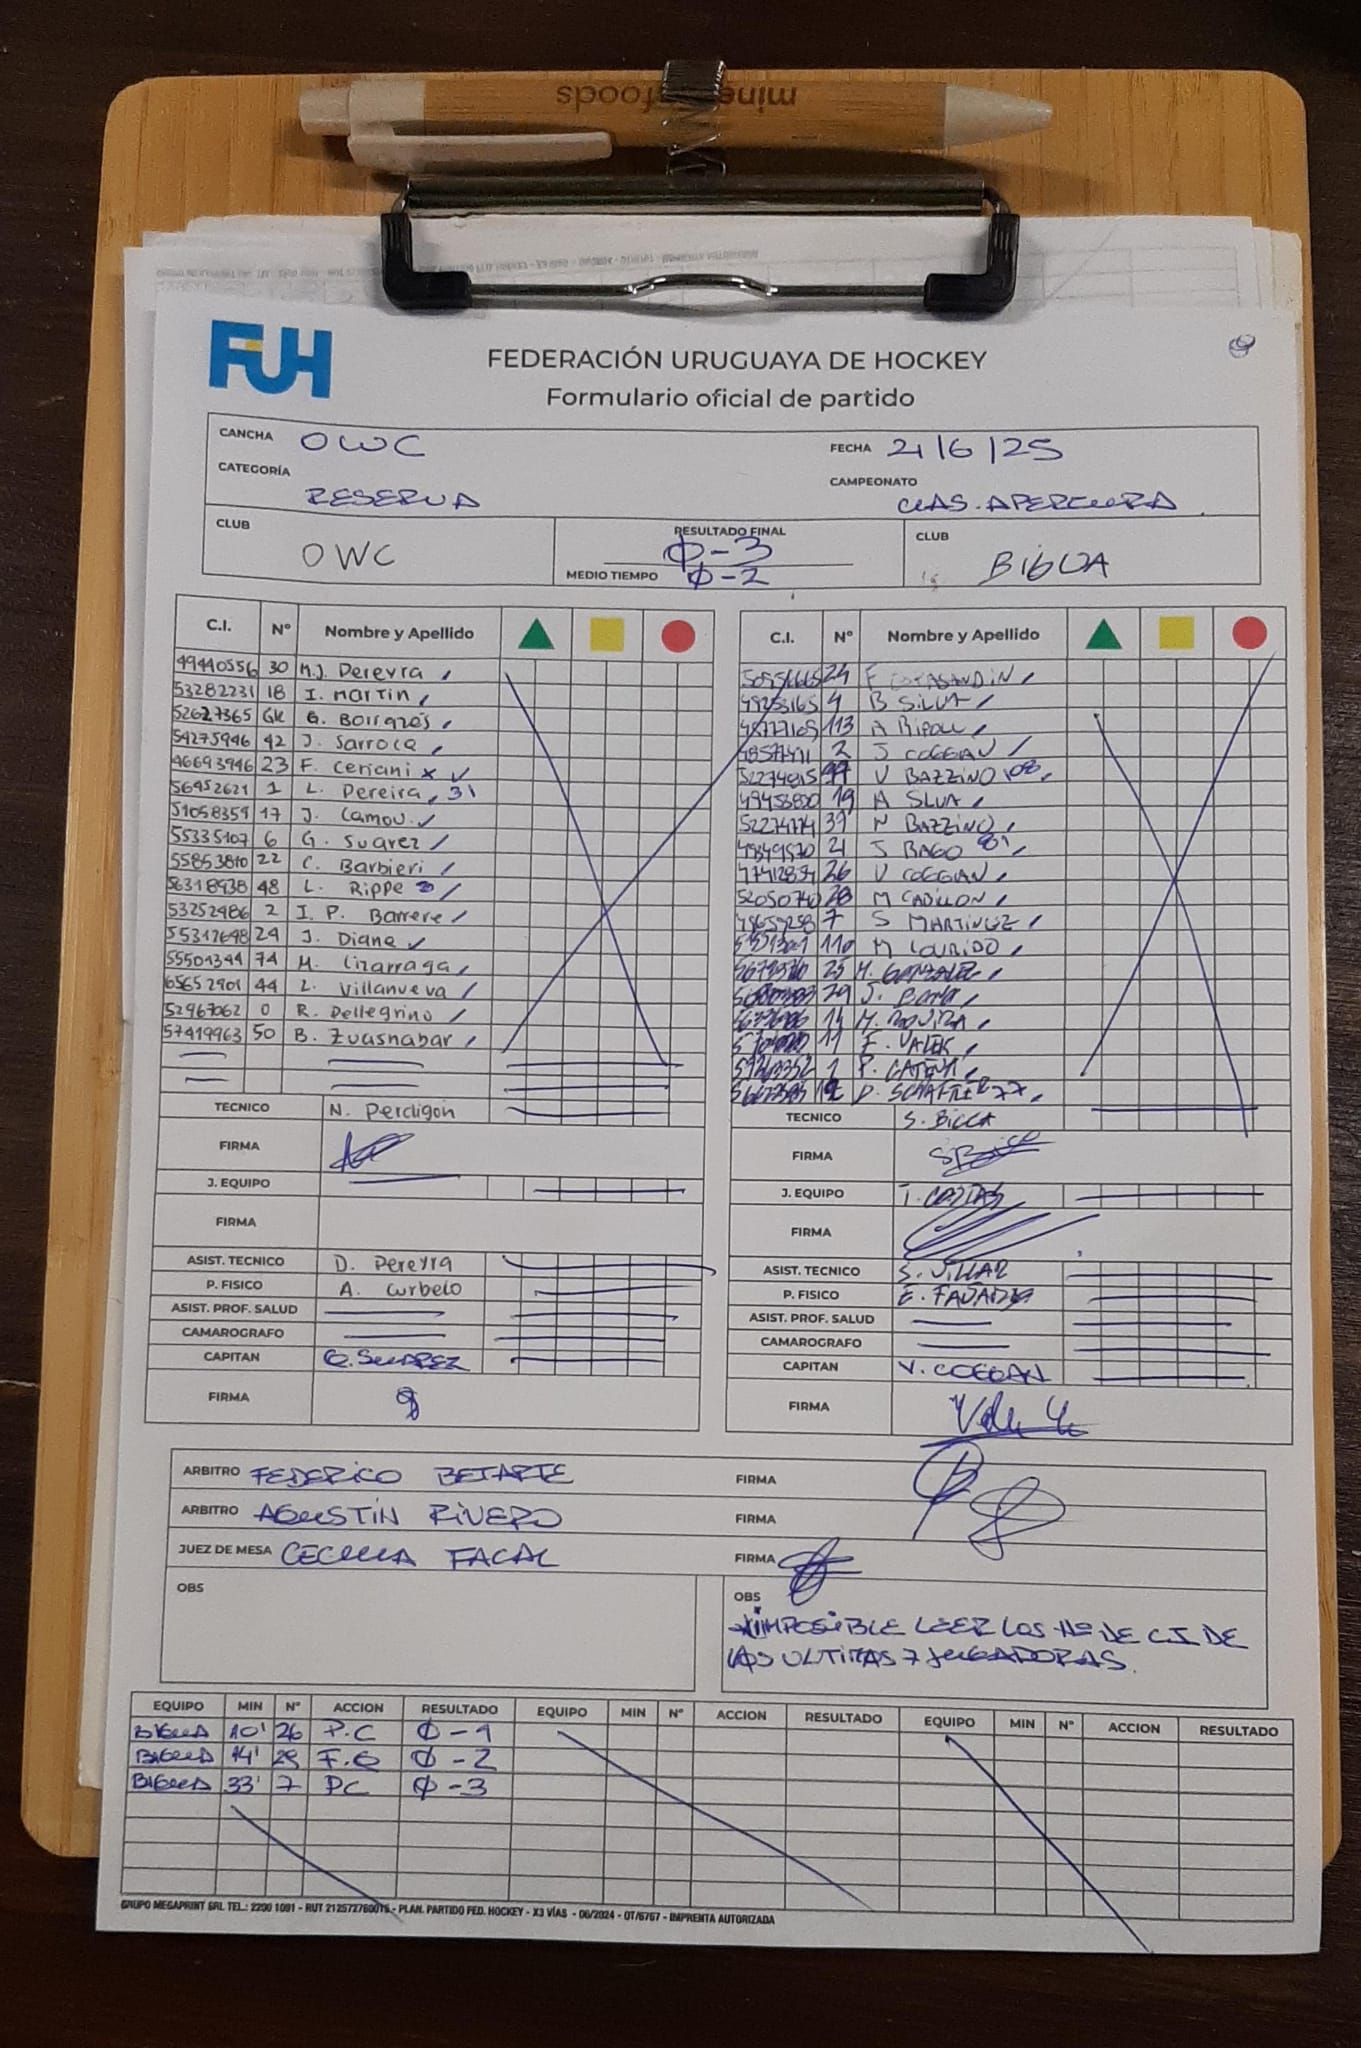 minerafoods
FUH
FEDERACIÓN URUGUAYA DE HOCKEY
Formulario oficial de partido
CANCHA OWC FECHA 21/6/25
CATEGORÍA RESERVA CAMPEONATO CLAS. APERTURA
CLUB OWC RESULTADO FINAL Ø-3 CLUB BIGUA
MEDIO TIEMPO Ø-2
C.I. Nº Nombre y Apellido
49440556 30 M.J. Pereyra
53282231 18 I. Martin
52627365 GK G. Borrazás
54275946 42 J. Sarroca
46693946 23 F. Ceriani x
56952621 1 L. Pereira 31
51058359 17 J. Camou
55335107 6 G. Suarez
55853810 22 C. Barbieri
56318938 48 L. Rippe
53252986 2 I. P. Barrere
55312698 24 J. Diana
55501344 74 M. Lizarraga
65652901 44 L. Villanueva
52967062 0 R. Pellegrino
57419963 50 B. Zuasnabar
TECNICO N. Perdigon
FIRMA
J. EQUIPO
FIRMA
ASIST. TECNICO D. Pereyra
P. FISICO A. Curbelo
ASIST. PROF. SALUD
CAMAROGRAFO
CAPITAN G. SUAREZ
FIRMA
C.I. Nº Nombre y Apellido
24 F
4 B SILVA
113 A RIPOLL
2 J COGGIAN
V BAZZINO 108
19 A SILVA
N BAZZINO
21 S BAGO 81
26 V COGGIAN
52050740 28 M CADILLON
7 S MARTINEZ
110 M LOURIDO
25 M. GONZALEZ
29 J.
14 M. ROVIRA
11 F.
1 P.
D. 77
TECNICO S. BICCA
FIRMA
J. EQUIPO T. COSTAS
FIRMA
ASIST. TECNICO S. VILLAR
P. FISICO E.
ASIST. PROF. SALUD
CAMAROGRAFO
CAPITAN V. COGGIAN
FIRMA
ARBITRO FEDERICO BETARTE FIRMA
ARBITRO AGUSTIN RIVERO FIRMA
JUEZ DE MESA CECILIA FACAL FIRMA
OBS
OBS
IMPOSIBLE LEER LOS Nº DE C.I DE
LAS ULTIMAS 7 JUGADORAS.
EQUIPO MIN Nº ACCION RESULTADO EQUIPO MIN Nº ACCION RESULTADO EQUIPO MIN Nº ACCION RESULTADO
BIGUA 10' 26 P.C Ø-1
BIGUA 14' 29 F.G Ø-2
BIGUA 33' 7 PC Ø-3
GRUPO MEGAPRINT SRL TEL.: 2200 1091 - RUT 212572760015 - PLAN. PARTIDO FED. HOCKEY - X3 VÍAS - 06/2024 - OT/6767 - IMPRENTA AUTORIZADA